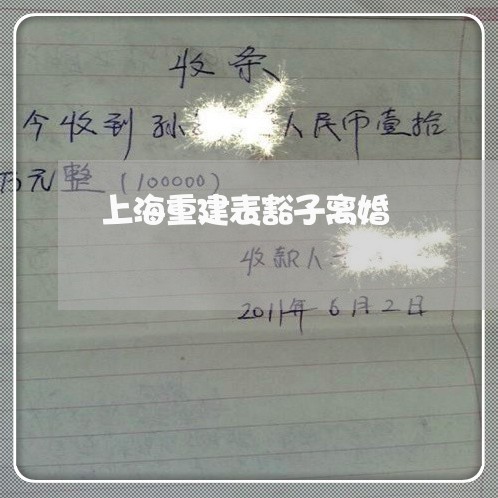 收条
今收到孙 人民币壹拾
万元整(100000)
上海重建表豁子离婚
收款人
2011年6月2日